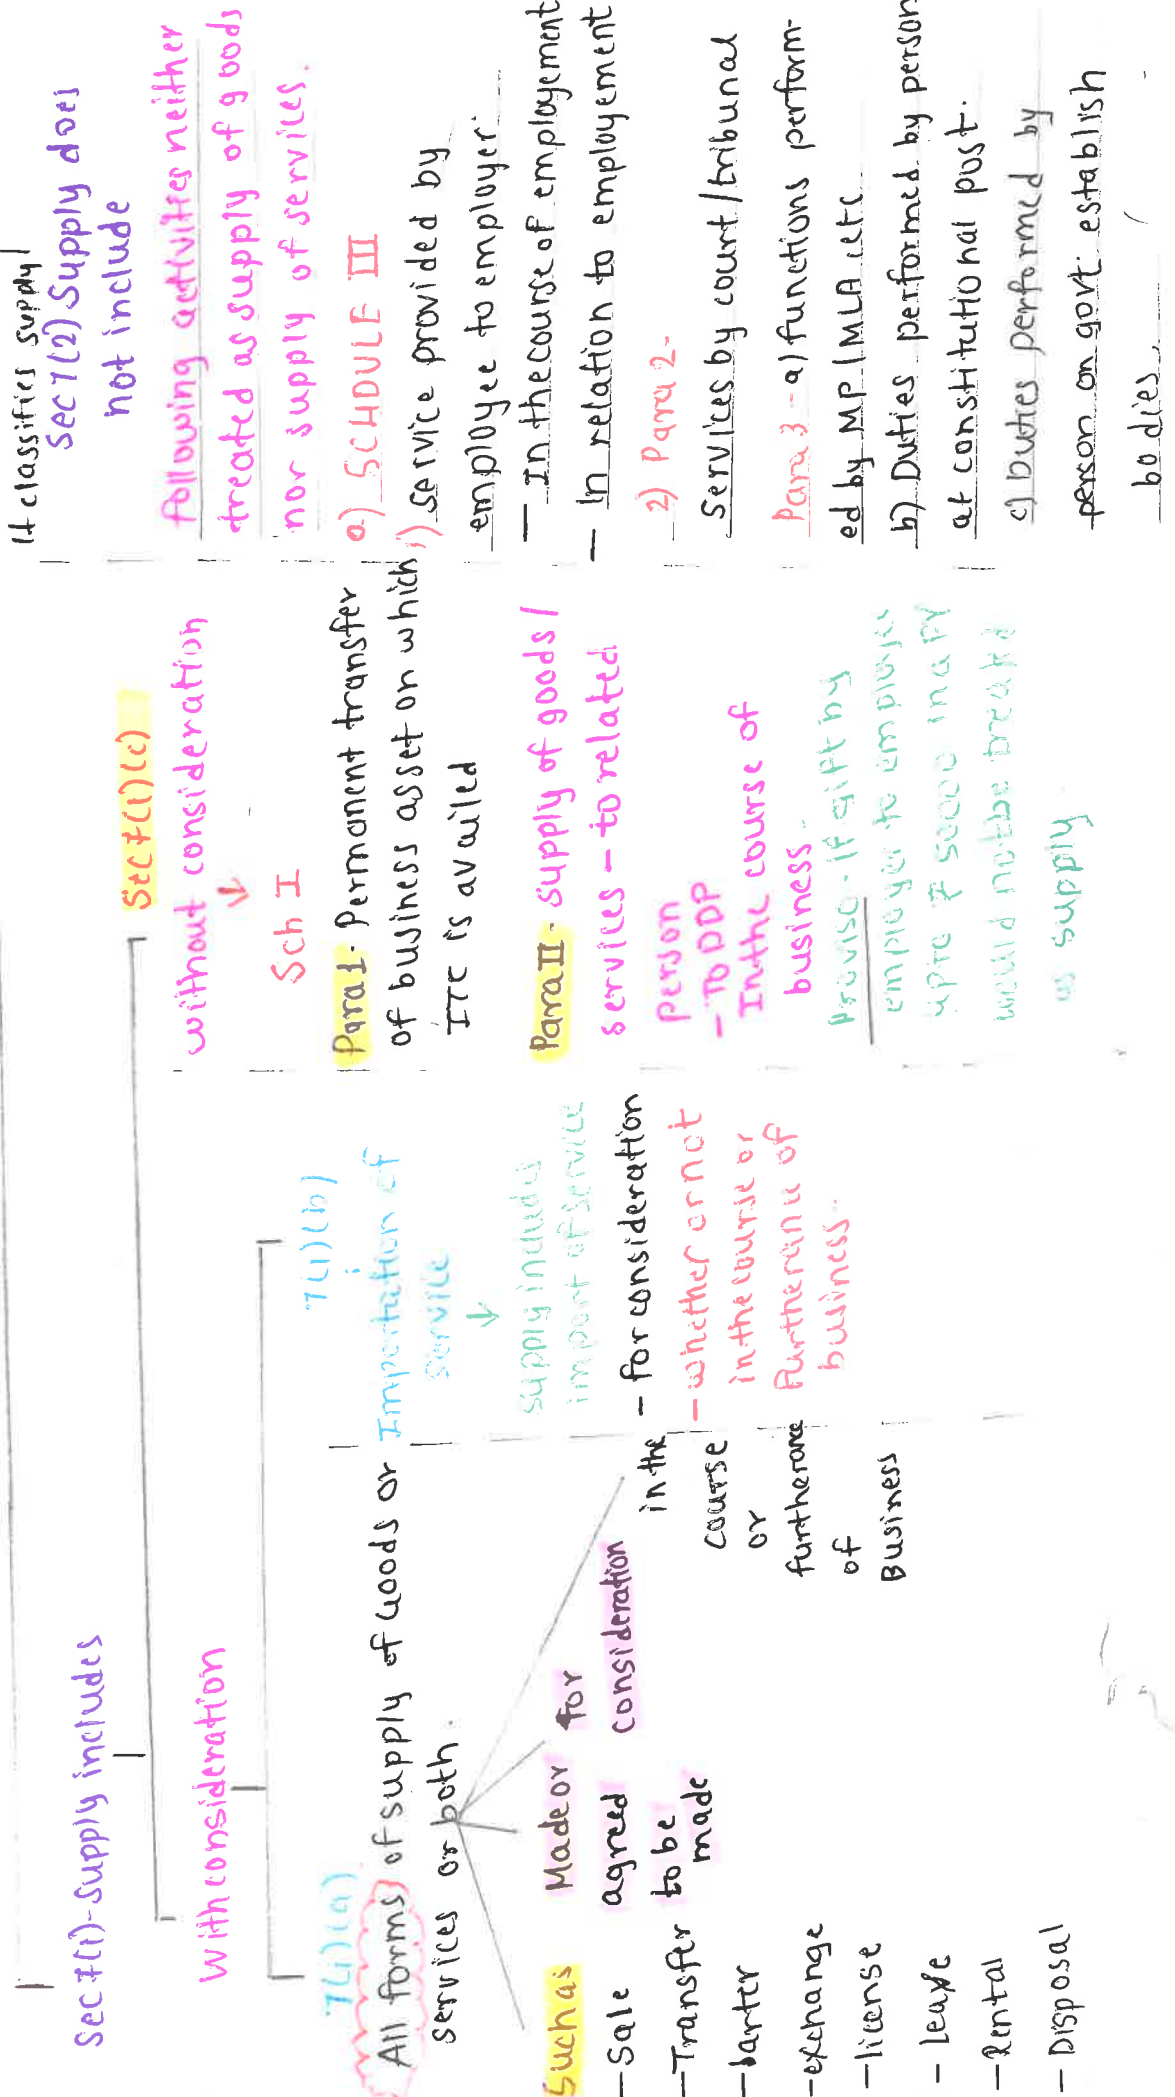 (It classifies supply)
Sec 7(1)-Supply includes
With consideration
7(1)(a)
All forms of supply of Goods or
services or both.
Such as
- Sale
- Transfer
- barter
- exchange
- license
- Lease
- Rental
- Disposal
Made or
agreed
to be
made
for
consideration
in the
course
or
furtherance
of
Business
7(1)(b)
Importation of
Service
↓
Supply includes
import of service
- For consideration
- whether or not
in the course or
Furtherance of
business.
Sec 7(1)(c)
without consideration
↓
Sch I
Para 1. Permanent transfer
of business asset on which
ITC is availed
Para II. Supply of goods/
services - to related
person
- TO DDP
In the course of
business.
Proviso - if gift by
employer to employee
upto ₹ 50000 in a FY
would not be treated
as supply
Sec 7(2) Supply does
not include
Following activities neither
treated as supply of goods
nor supply of services.
a) SCHDULE III
i) service provided by
employee to employer
- In the course of employement
- in relation to employement
2) Para 2-
Services by court/tribunal
Para 3 - a) functions perform-
ed by MP/MLA etc
b) Duties performed by person
at constitutional post.
c) Duties performed by
person on govt. establish
bodies